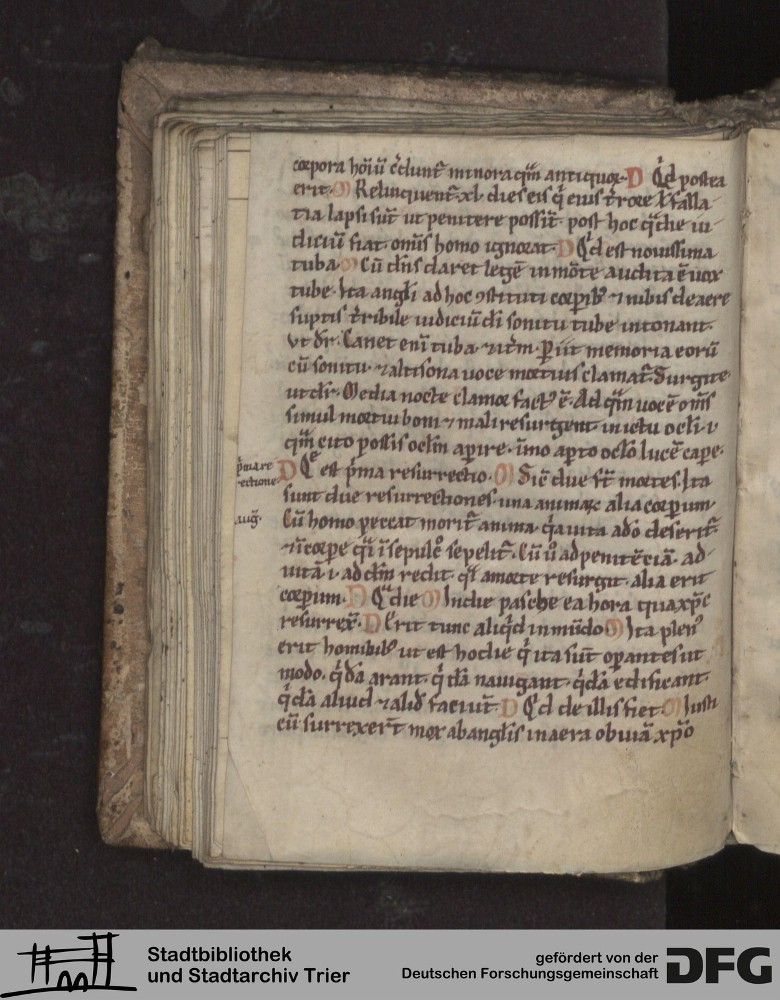 corpora hoīu c̄dunt᷑ minora qm̄ antiquoꝝ. D Q̇d postea
erit. M Relinquent᷑ .xl. dies eis q̇ eius t᷑rore ł falla
tia lapsi sūt ut penitere possīt. post hoc q̄ die iu
diciū fiat omīs homo ignorat. D Q̇d est nouissima
tuba. M Cū dn̄s daret legē in mōte audita ē uox
tube. Ita angłi ad hoc ꝯstituti corpib᷒ ⁊ nubis de aere
suptis t᷑ribile iudiciū di sonitu tube intonant.
vt dr̄. Canet enī tuba. ⁊ itm̄. Piit memoria eorū
cū sonitu. ⁊ altisona uoce mortuis clamat᷑. Surgite
ut dr̄. Media nocte clamor fact᷒ ē. Ad qm̄ uocē om̄s
simul mortui boni ⁊ mali resurgent. in ictu ocłi. i.
qm̄ cito possis ocłm apire. īmo apto ocło lucē cape.
p̄ma re
rectione.
D Q̄ est p̄ma resurrectio. M Sic̄ due st̄ mortes. Ita
sunt due resurrectiones. una animaꝝ alia corpum.
.aug̅.
Cū homo peccat morit᷑ anima. q̇a uita a dō deserit᷑.
⁊ ī corpe q̇i ī sepulc᷒ sepelit᷑. Cū ů ad penitēciā. ad
uitā .i. ad dm̄ redit. q̇i a morte resurgit. alia erit
corpum. D Q̇ die M In die pasche ea hora qua xp̄c
resurrex̄. D Erit tunc aliq̇d in mūdo M Ita plen᷒
erit hominib᷒ ut est hodie q̇ ita sūt operantes ut
modo. q̇dā arant. q̇dā nauigant. q̇dā edificant.
q̇dā aliud ⁊ alid̄ faciūt. D Q̇d de illis fiet M Iusti
cū surrexert᷑ mox ab angłis in aera obuiā xp̄o
Stadtbibliothek
und Stadtarchiv Trier
gefördert von der
Deutschen Forschungsgemeinschaft
DFG